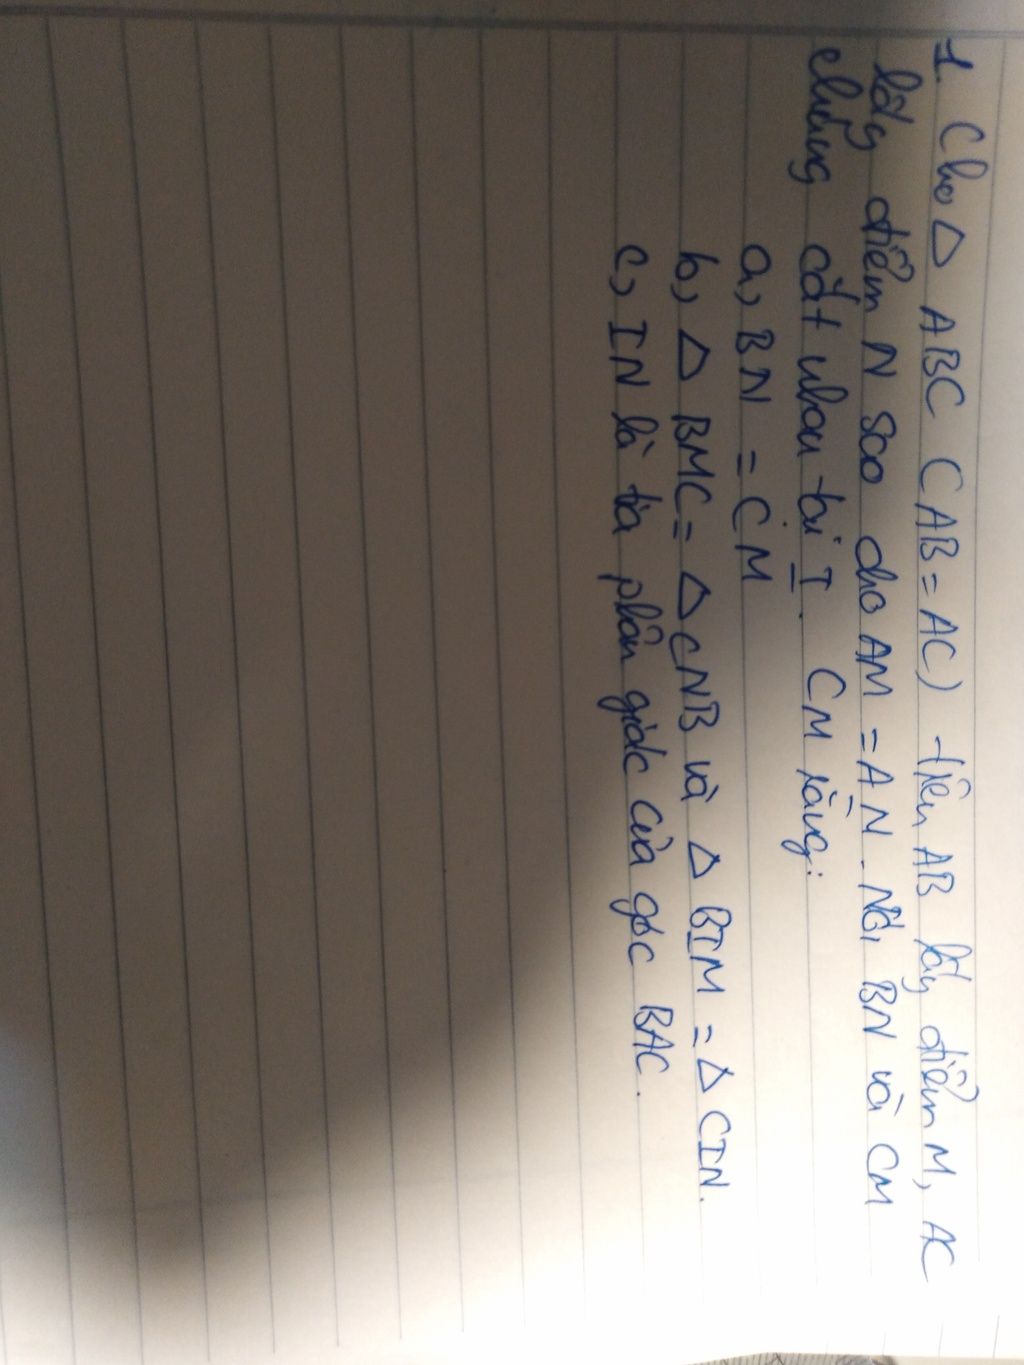 1. Cho △ ABC (AB = AC) trên AB lấy điểm M, AC
lấy điểm N sao cho AM = AN. Nối BN và CM
chúng cắt nhau tại I. CM rằng:
a, BN = CM
b, △ BMC = △ CNB và △ BIM = △ CIN.
c, IN là tia phân giác của góc BAC.